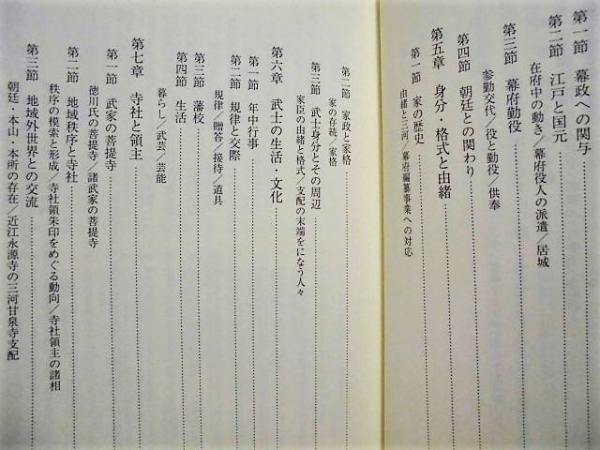 第一節 幕政への関与
第二節 江戸と国元
在府中の動き／幕府役人の派遣／居城
第三節 幕府勤役
参勤交代／役と勤役／供奉
第四節 朝廷との関わり
第五章 身分・格式と由緒
第一節 家の歴史
由緒と三河／幕府編纂事業への対応
第二節 家政と家格
家の存続／家格
第三節 武士身分とその周辺
家臣の由緒と格式／支配の末端をになう人々
第六章 武士の生活・文化
第一節 年中行事
第二節 規律と交際
規律／贈答／接待／道具
第三節 藩校
第四節 生活
暮らし／武芸／芸能
第七章 寺社と領主
第一節 武家の菩提寺
徳川氏の菩提寺／諸武家の菩提寺
第二節 地域秩序と寺社
秩序の模索と形成／寺社領朱印をめぐる動向／寺社領主の諸相
第三節 地域外世界との交流
朝廷・本山・本所の存在／近江永源寺の三河甘泉寺支配